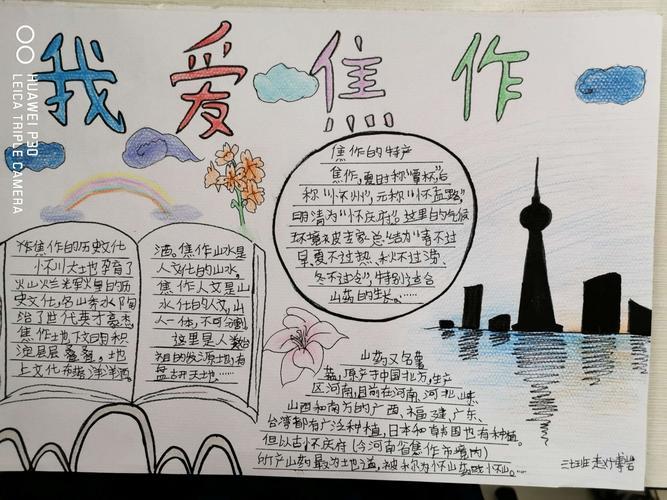 我爱焦作
HUAWEI P30
LEICA TRIPLE CAMERA
焦作的特产
焦作,夏时称"覃怀",后
称"怀州",元称"怀孟路",
明清为"怀庆府"。这里的气候
环境被专家总结为"春不过
旱,夏不过热,秋不过涝,
冬不过冷",特别适合
山药的生长。……
焦作的历史文化
怀川大土也孕育了
火山火兰光军火里的历
史文化,名山秀水陶
冶了世代英才豪杰
焦作土也下文明积
淀层层叠叠,土也
上文化布满洋洋洒
洒。焦作山水是
人文化的山水。
焦作人文是山
水化的人文,山
人一体,不可分割。
这里是人类始
祖的发源地,有
盘古开天地……
山药又名薯
蓣,原产于中国北方,生产
区河南,目前在河南、河北、山东
山西和南方的广西、福建、广东、
台湾都有广泛种植,日本和韩国也有种植。
但以古怀庆府(今河南省焦作市境内)
所产山药最为土也道,被称为怀山药或怀山。……